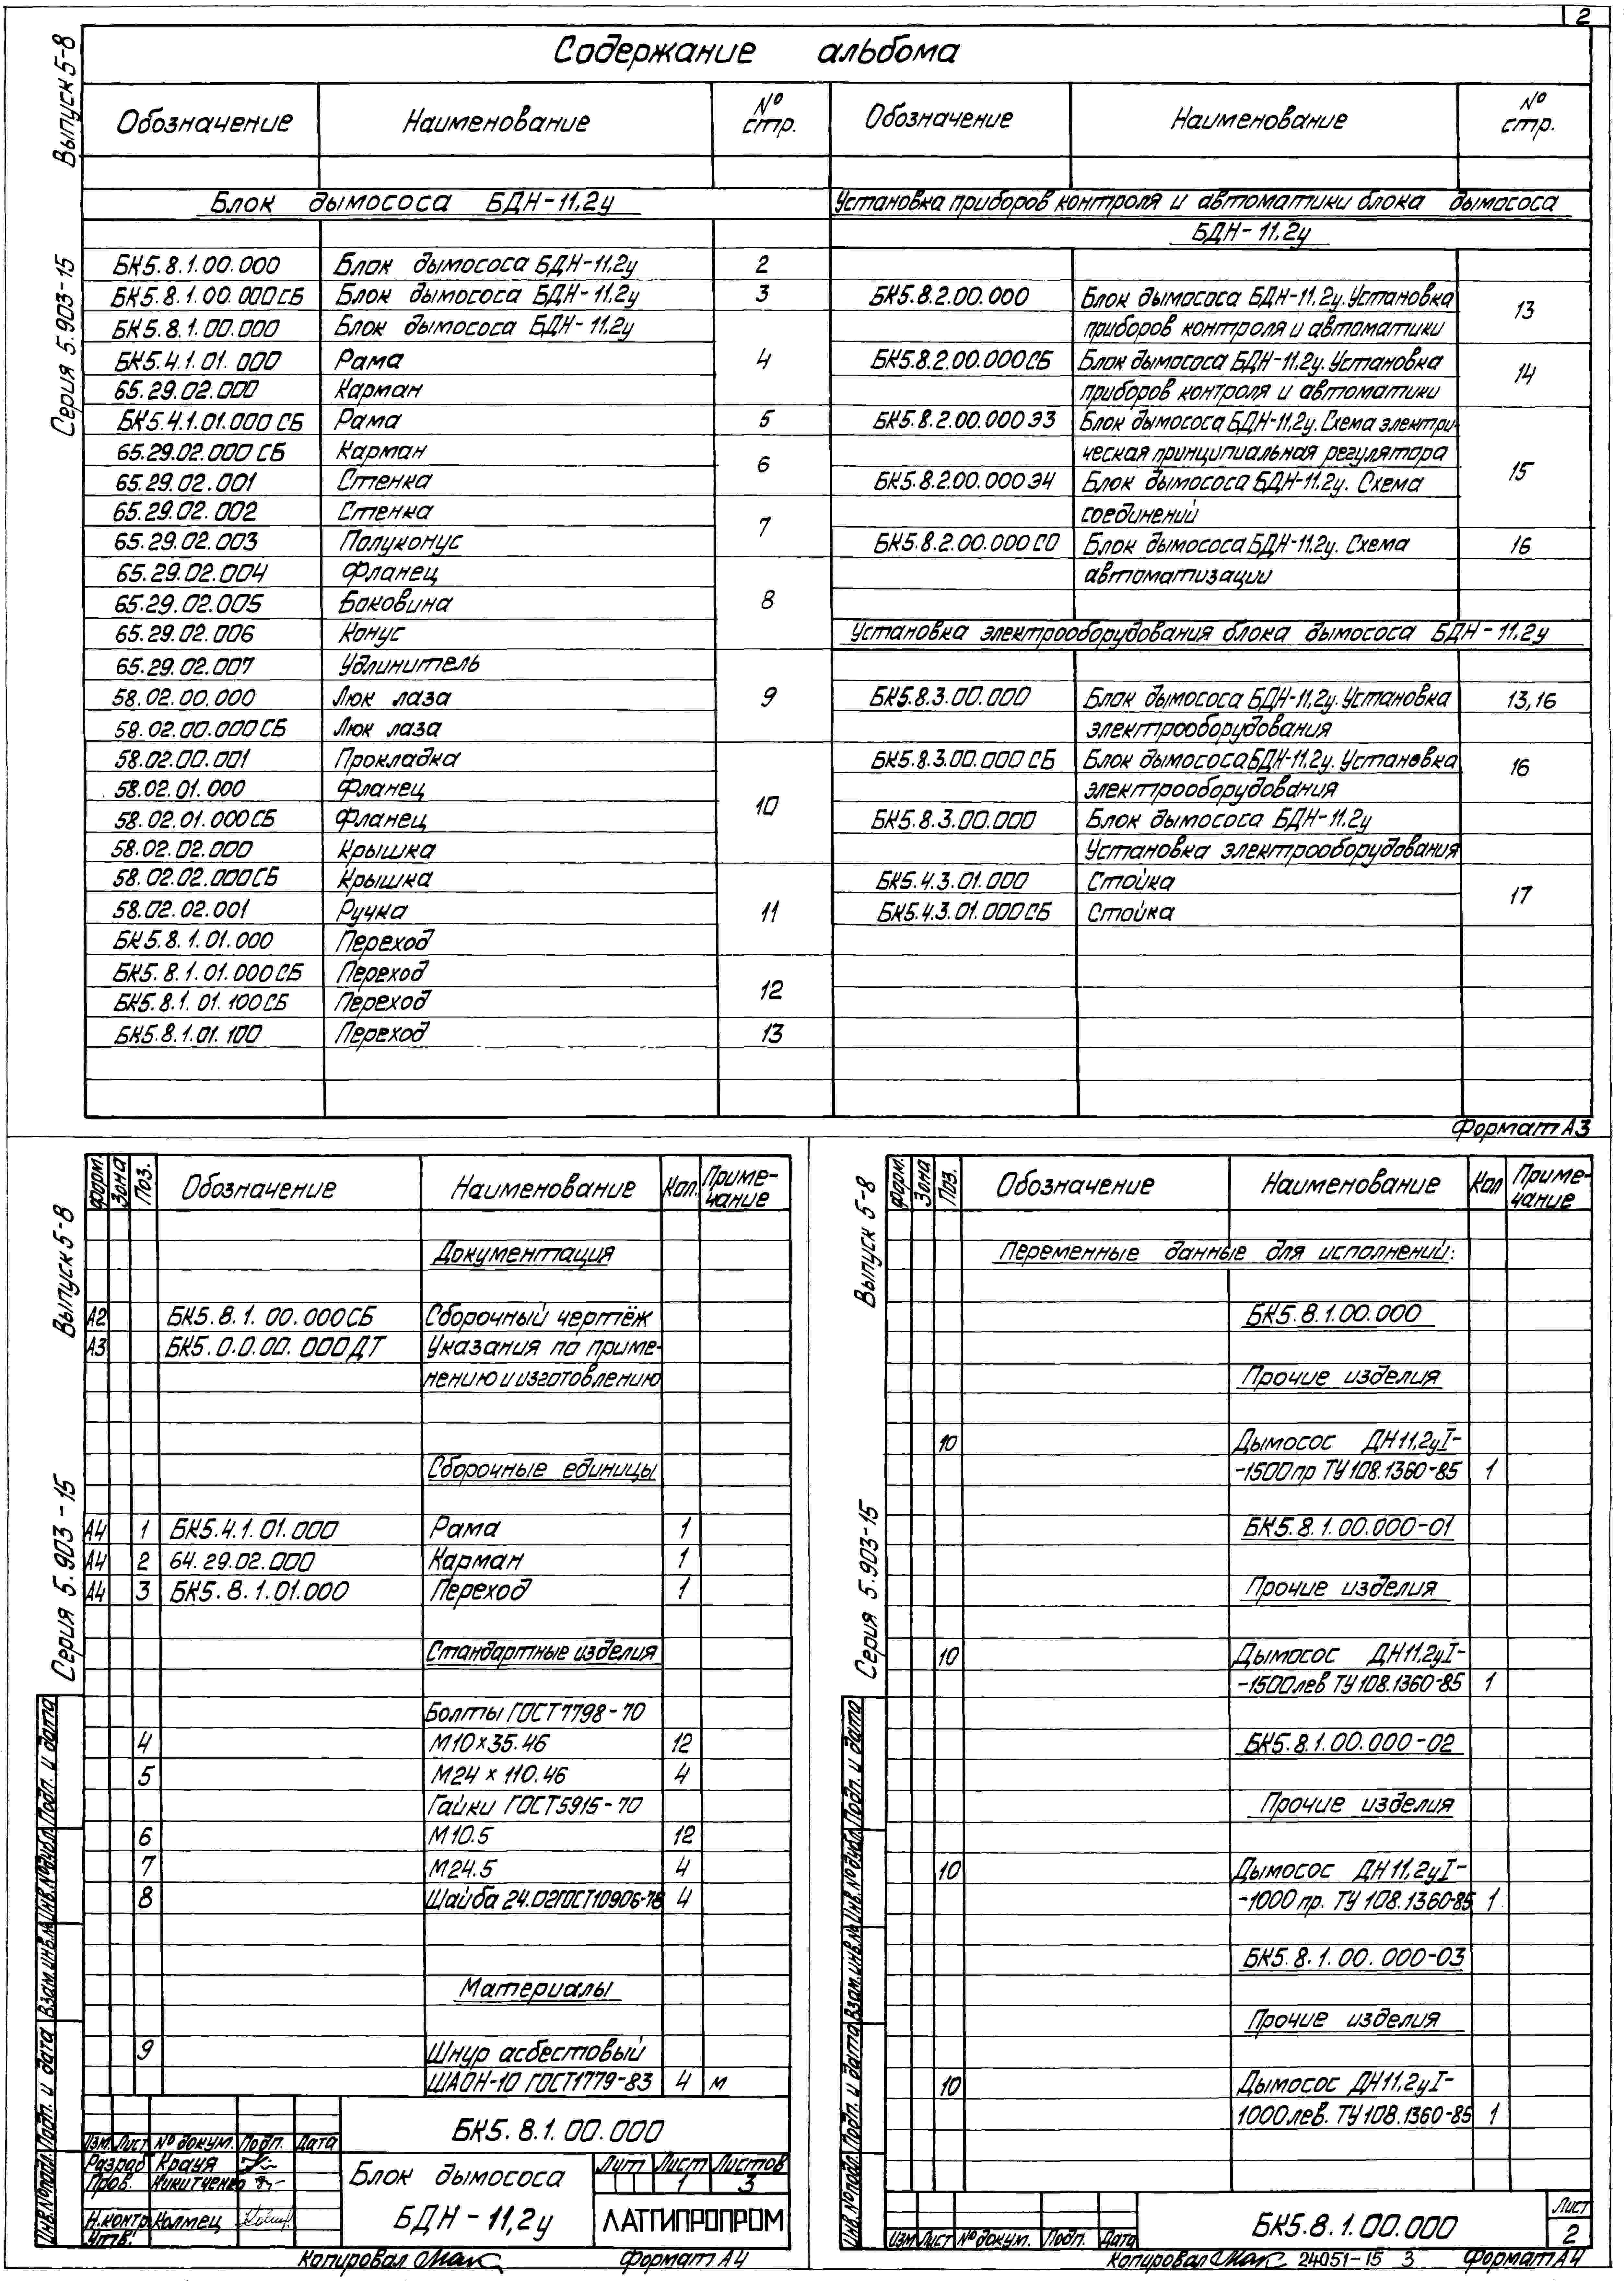 2
Выпуск 5-8
Серия 5.903-15
Содержание альбома
Обозначение Наименование № стр. Обозначение Наименование № стр.
Блок дымососа БДН-11,2у
БК5.8.1.00.000 Блок дымососа БДН-11,2у 2
БК5.8.1.00.000СБ Блок дымососа БДН-11,2у 3
БК5.8.1.00.000 Блок дымососа БДН-11,2у
БК5.4.1.01.000 Рама 4
65.29.02.000 Карман
БК5.4.1.01.000СБ Рама 5
65.29.02.000СБ Карман 6
65.29.02.001 Стенка
65.29.02.002 Стенка 7
65.29.02.003 Полуконус
65.29.02.004 Фланец
65.29.02.005 Боковина 8
65.29.02.006 Конус
65.29.02.007 Удлинитель
58.02.00.000 Люк лаза 9
58.02.00.000СБ Люк лаза
58.02.00.001 Прокладка
58.02.01.000 Фланец 10
58.02.01.000СБ Фланец
58.02.02.000 Крышка
58.02.02.000СБ Крышка
58.02.02.001 Ручка 11
БК5.8.1.01.000 Переход
БК5.8.1.01.000СБ Переход 12
БК5.8.1.01.100СБ Переход
БК5.8.1.01.100 Переход 13
Установка приборов контроля и автоматики блока дымососа
БДН-11,2у
БК5.8.2.00.000 Блок дымососа БДН-11,2у. Установка 13
приборов контроля и автоматики
БК5.8.2.00.000СБ Блок дымососа БДН-11,2у. Установка 14
приборов контроля и автоматики
БК5.8.2.00.000Э3 Блок дымососа БДН-11,2у. Схема электри-
ческая принципиальная регулятора 15
БК5.8.2.00.000Э4 Блок дымососа БДН-11,2у. Схема
соединений
БК5.8.2.00.000СО Блок дымососа БДН-11,2у. Схема 16
автоматизации
Установка электрооборудования блока дымососа БДН-11,2у
БК5.8.3.00.000 Блок дымососа БДН-11,2у. Установка 13,16
электрооборудования
БК5.8.3.00.000СБ Блок дымососа БДН-11,2у. Установка 16
электрооборудования
БК5.8.3.00.000 Блок дымососа БДН-11.2у
Установка электрооборудования
БК5.4.3.01.000 Стойка 17
БК5.4.3.01.000СБ Стойка
Формат А3
Выпуск 5-8
Серия 5.903-15
Форм. Зона Поз. Обозначение Наименование Кол. Приме-
чание
Документация
А2 БК5.8.1.00.000СБ Сборочный чертёж
А3 БК5.0.0.00.000ДТ Указания по приме-
нению и изготовлению
Сборочные единицы
А4 1 БК5.4.1.01.000 Рама 1
А4 2 64.29.02.000 Карман 1
А4 3 БК5.8.1.01.000 Переход 1
Стандартные изделия
Болты ГОСТ7798-70
4 М10×35.46 12
5 М24×110.46 4
Гайки ГОСТ5915-70
6 М10.5 12
7 М24.5 4
8 Шайба 24.02ГОСТ10906-78 4
Материалы
9 Шнур асбестовый
ШАОН-10 ГОСТ1779-83 4 м
Инв.№подл. Подп. и дата Взам.инв.№ Инв.№дубл. Подп. и дата
БК5.8.1.00.000
Изм. Лист № докум. Подп. Дата
Разраб Крауя
Пров. Никитченко
Н.контр. Колмец
Утв.
Блок дымососа
БДН-11,2у
Лит Лист Листов
1 3
ЛАТГИПРОПРОМ
Копировал Формат А4
Выпуск 5-8
Серия 5.903-15
Форм. Зона Поз. Обозначение Наименование Кол Приме-
чание
Переменные данные для исполнений:
БК5.8.1.00.000
Прочие изделия
10 Дымосос ДН11,2уI-
-1500пр ТУ108.1360-85 1
БК5.8.1.00.000-01
Прочие изделия
10 Дымосос ДН11,2уI-
-1500лев ТУ108.1360-85 1
БК5.8.1.00.000-02
Прочие изделия
10 Дымосос ДН11,2уI-
-1000 пр. ТУ108.1360-85 1
БК5.8.1.00.000-03
Прочие изделия
10 Дымосос ДН11,2уI-
1000лев. ТУ108.1360-85 1
Инв.№подл. Подп. и дата Взам.инв.№ Инв.№дубл. Подп. и дата
Изм Лист № докум. Подп. Дата
БК5.8.1.00.000
Лист
2
Копировал 24051-15 3 Формат А4